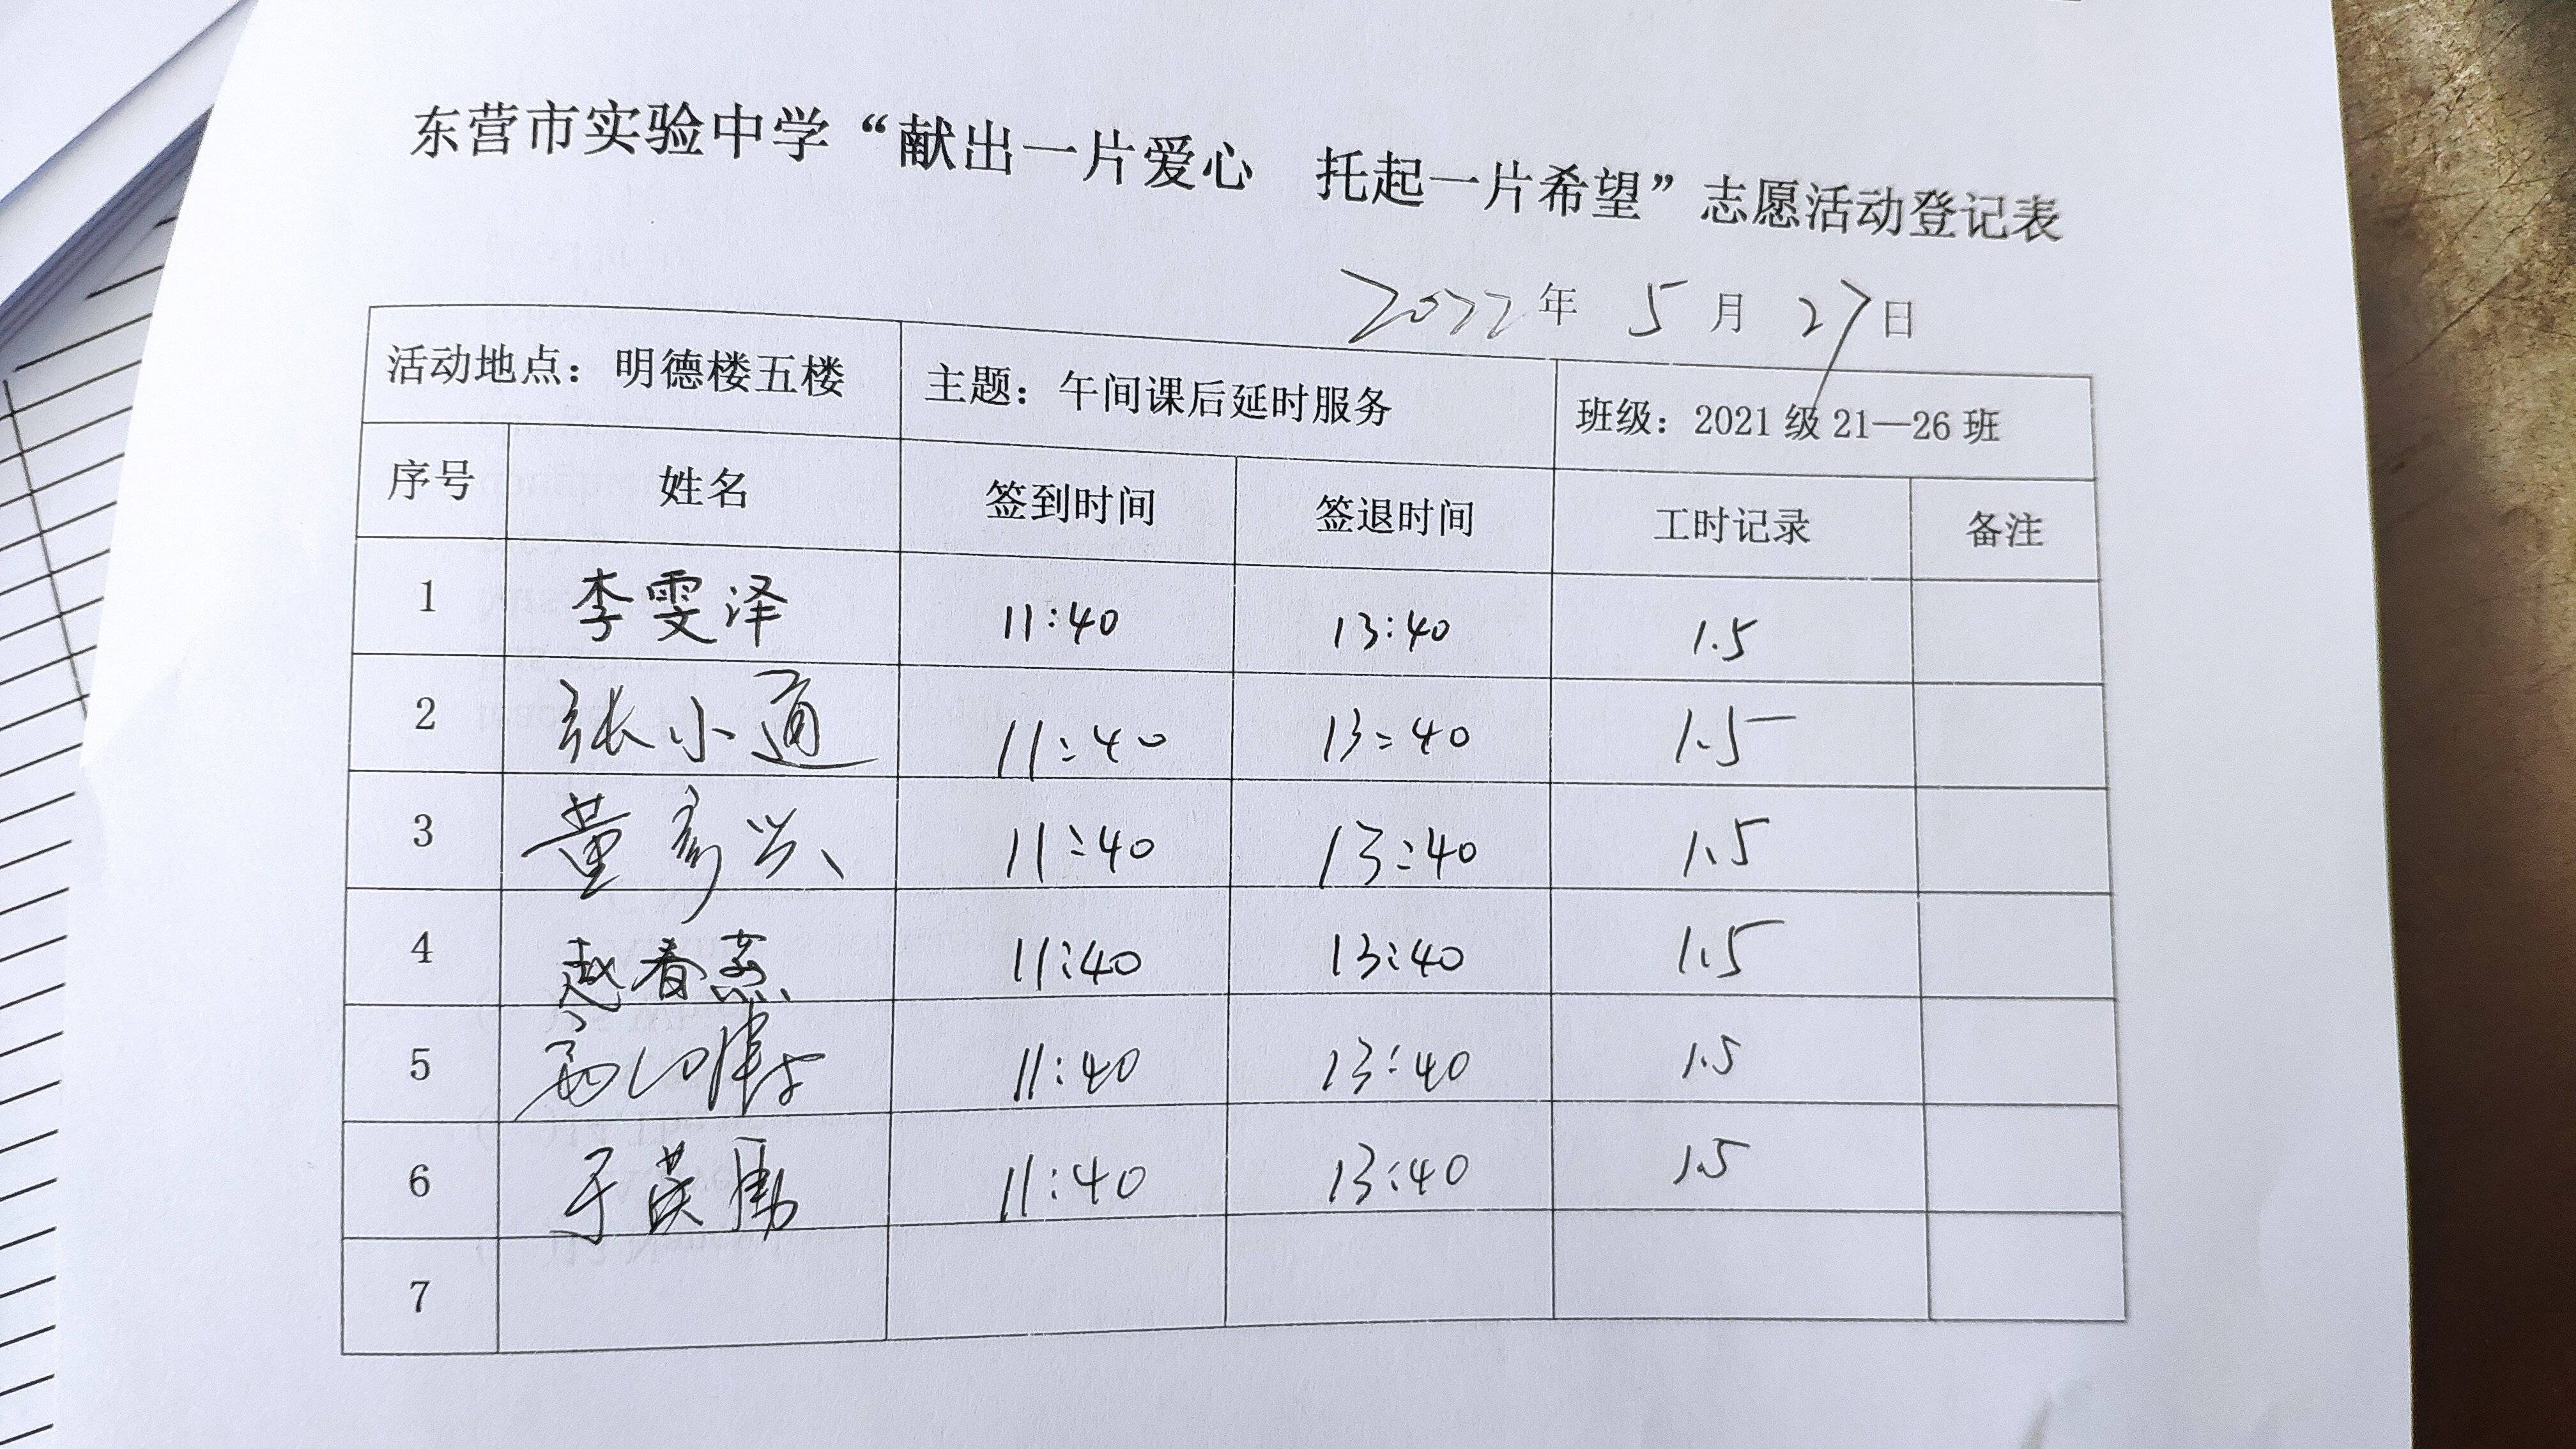 东营市实验中学“献出一片爱心　托起一片希望”志愿活动登记表
2022年 5月 27日
活动地点：明德楼五楼 主题：午间课后延时服务 班级：2021级21—26班
序号 姓名 签到时间 签退时间 工时记录 备注
1 李雯泽 11:40 13:40 1.5
2 张小通 11:40 13:40 1.5
3 董彦兴 11:40 13:40 1.5
4 赵春燕 11:40 13:40 1.5
5 11:40 13:40 1.5
6 于英 11:40 13:40 1.5
7